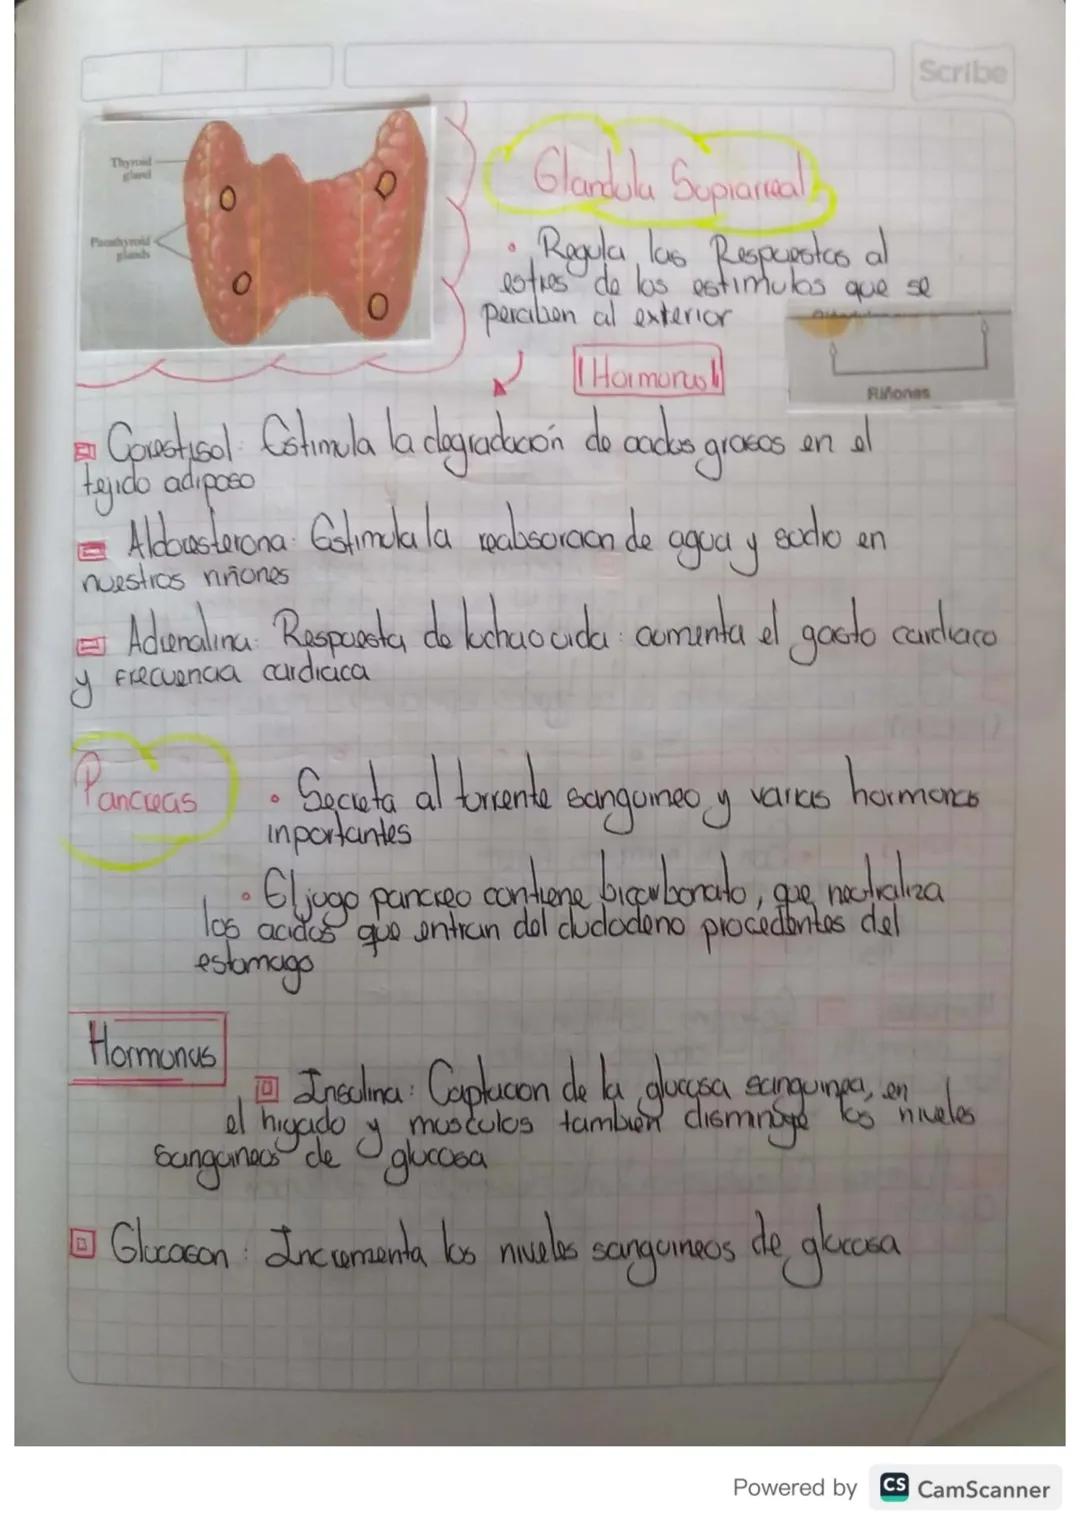 Scribe
Thyroid
gland
Parathyroid
glands
Glandula Suprarreal
• Regula las Respuestas al
estres de los estimulos que se
perciben al exterior
Hormonas
Riñones
Corestisol: Estimula la degradación de acidos grasos en el
tejido adiposo
Aldoresterona: Estimula la reabsorcion de agua y sodio en
nuestros riñones
Adrenalina: Respuesta de lucha o uida: aumenta el gasto cardiaco
y frecuencia cardiaca
Pancreas
• Secreta al torrente sanguineo y varias hormonas
inportantes
• El jogo pancreo contiene bicarbonato, que neutraliza
los acidos que entran del dudodeno procedentes del
estomago
Hormonas
Insulina: Captacion de la glucosa sanguinea, en
el higado y musculos también disminuye los niveles
sanguineos de glucosa
Glucagon: Incrementa los niveles sanguineos de glucosa
Powered by CS CamScanner